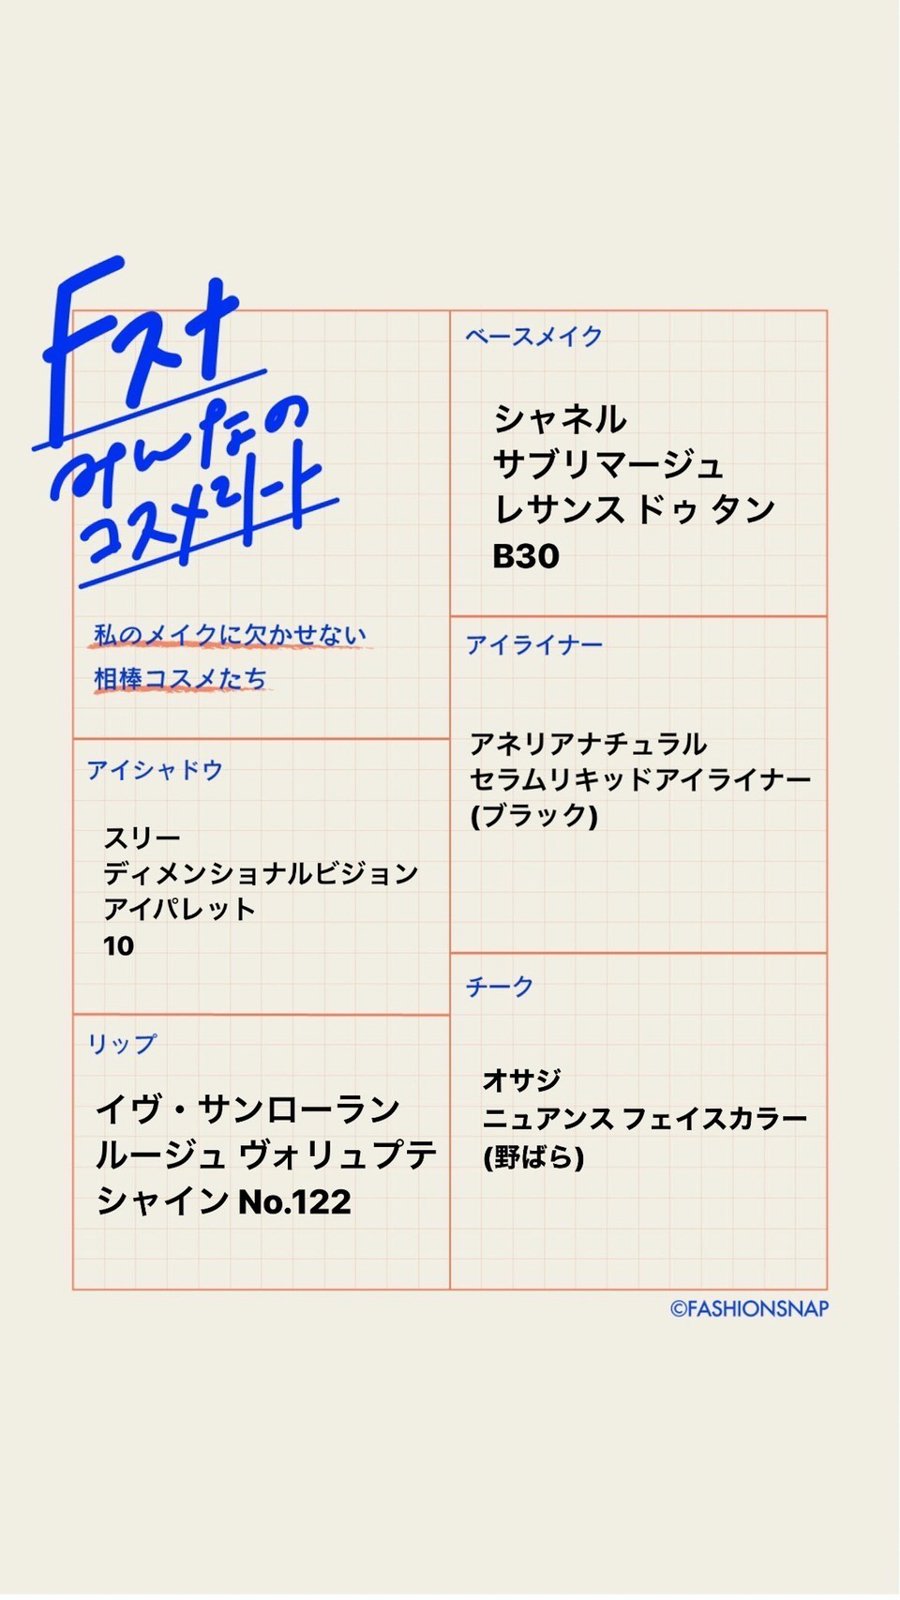 Fスナ
みんなの
コスメシート
私のメイクに欠かせない
相棒コスメたち
ベースメイク
シャネル
サブリマージュ
レサンス ドゥ タン
B30
アイライナー
アネリアナチュラル
セラムリキッドアイライナー
(ブラック)
アイシャドウ
スリー
ディメンショナルビジョン
アイパレット
10
チーク
オサジ
ニュアンス フェイスカラー
(野ばら)
リップ
イヴ・サンローラン
ルージュ ヴォリュプテ
シャイン No.122
©FASHIONSNAP